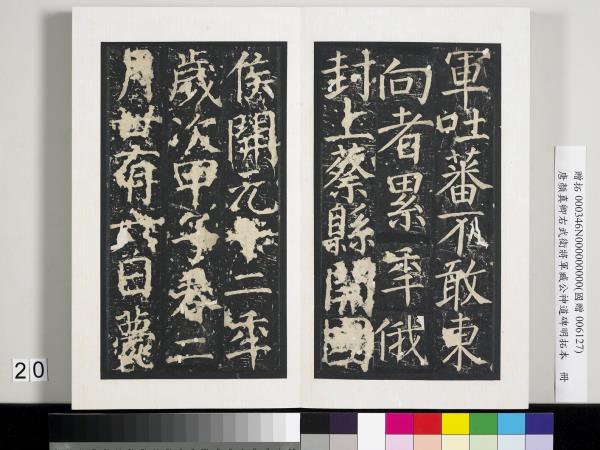 軍吐蕃不敢東
向者累年俄
封上蔡縣開國
侯開元十二年
歲次甲子春二
月廿有六日薨
贈拓 000346N000000000(國贈 006127)
唐顏真卿右武衛將軍臧公神道碑明拓本 冊
20